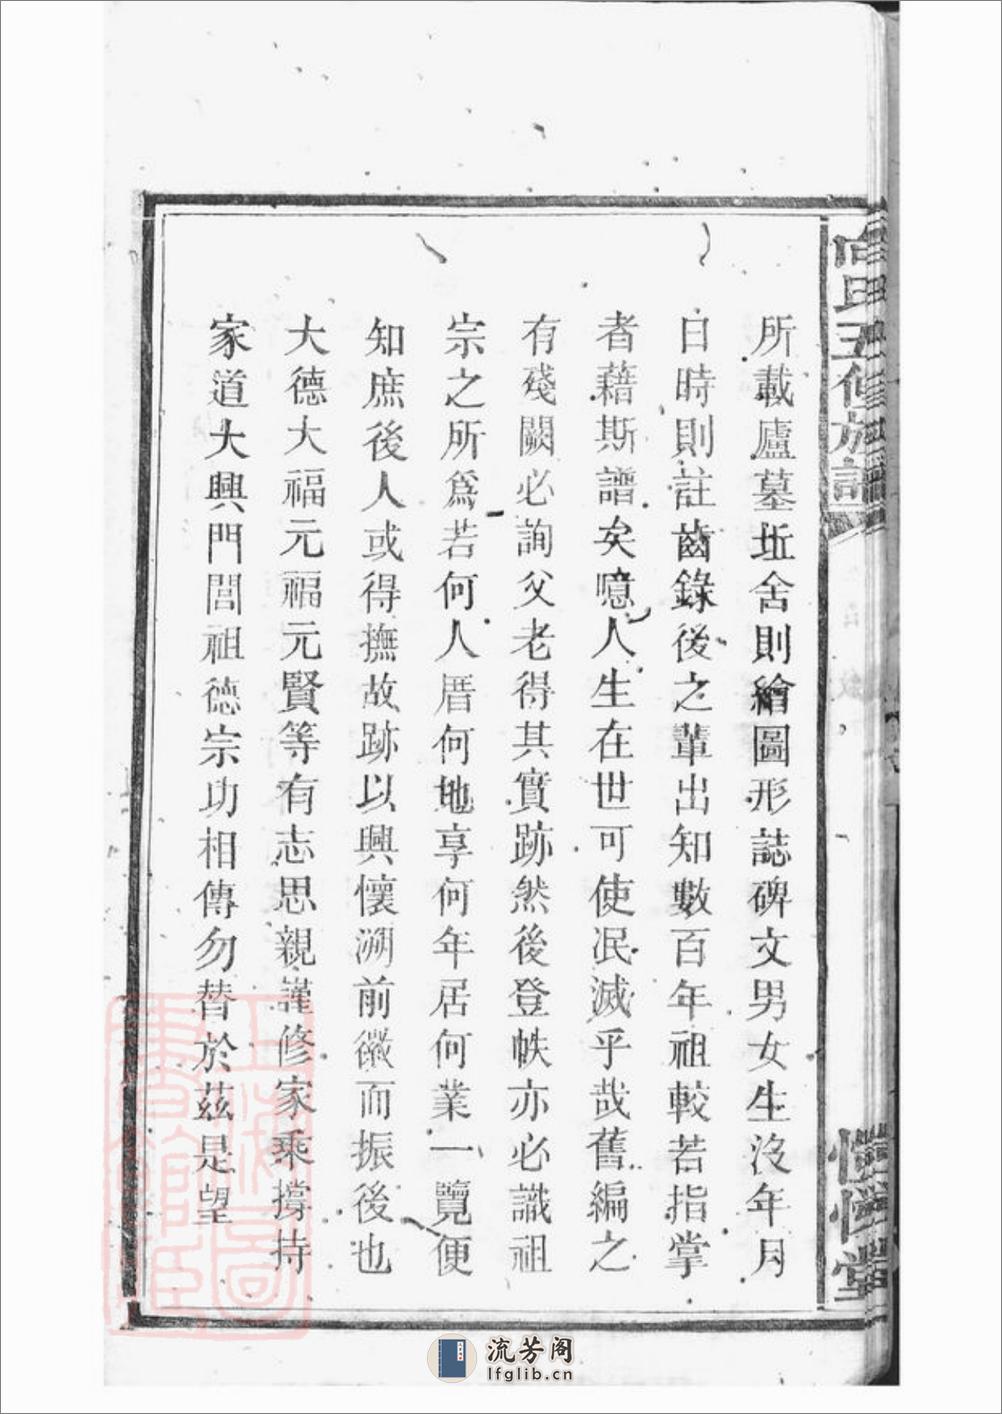 所載廬墓坵舍則繪圖形誌碑文男女生沒年月
日時則註齒錄後之輩出知數百年祖較若指掌
者藉斯譜矣噫人生在世可使泯滅乎哉舊編之
有殘闕必詢父老得其實跡然後登帙亦必識祖
宗之所爲若何人厝何地享何年居何業一覽便
知庶後人或得撫故跡以興懷溯前徽而振後也
大德大福元福元賢等有志思親謹修家乘撐持
家道大興門閭祖德宗功相傳勿替於茲是望
五修族譜
堂
上海圖書館藏
流芳阁
lfglib.cn